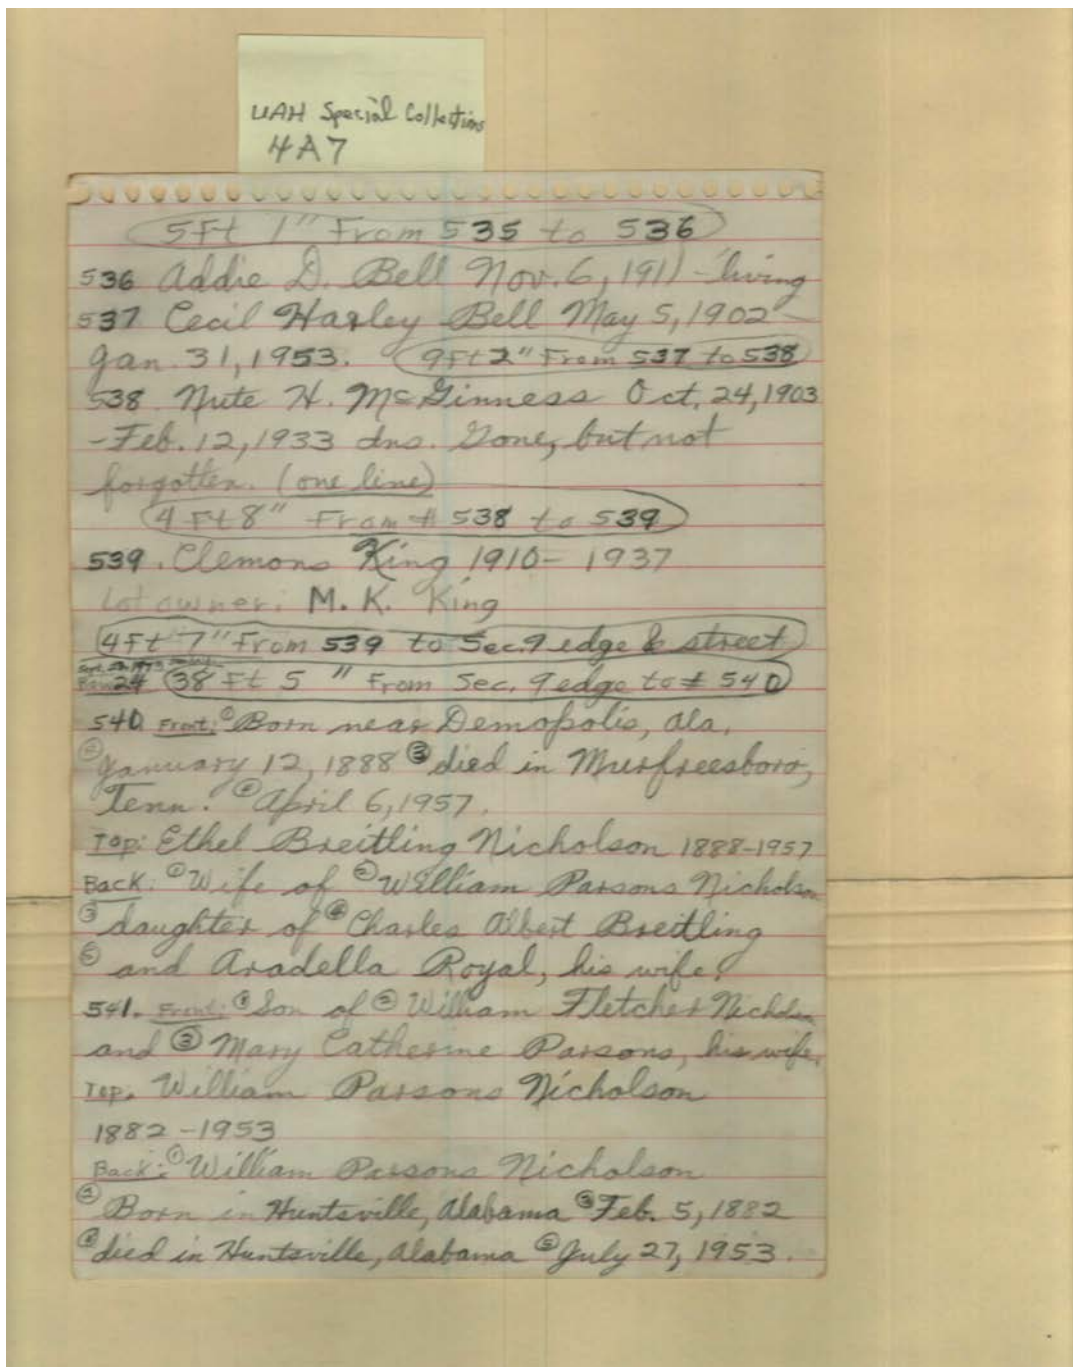 UAH Special Collections
4A7
5Ft 1" From 535 to 536
536 Addie D. Bell Nov. 6, 1911 - living
537 Cecil Harley Bell May 5, 1902 -
Jan. 31, 1953. 9Ft 2" From 537 to 538
538. Nute H. McGinness Oct. 24, 1903
- Feb. 12, 1933 Ins. Gone, but not
forgotten. (one line)
4 Ft 8" From # 538 to 539
539. Clemons King 1910 - 1937
Lot owner: M. K. King
4Ft 7" From 539 to Sec. 9 edge & street
Row 24 38 Ft 5" From Sec. 9 edge to # 540
540 Front: ① Born near Demopolis, Ala.
② January 12, 1888 ③ died in Murfreesboro,
Tenn. ④ April 6, 1957.
Top: Ethel Breitling Nicholson 1888-1957
Back: ① Wife of ② William Parsons Nicholson
③ daughter of ④ Charles Albert Breitling
⑤ and Aradella Royal, his wife.
541. Front: ① Son of ② William Fletcher Nicholson
and ③ Mary Catherine Parsons, his wife.
Top. William Parsons Nicholson
1882 - 1953
Back: ① William Parsons Nicholson
② Born in Huntsville, Alabama ③ Feb. 5, 1882
④ died in Huntsville, Alabama ⑤ July 27, 1953.